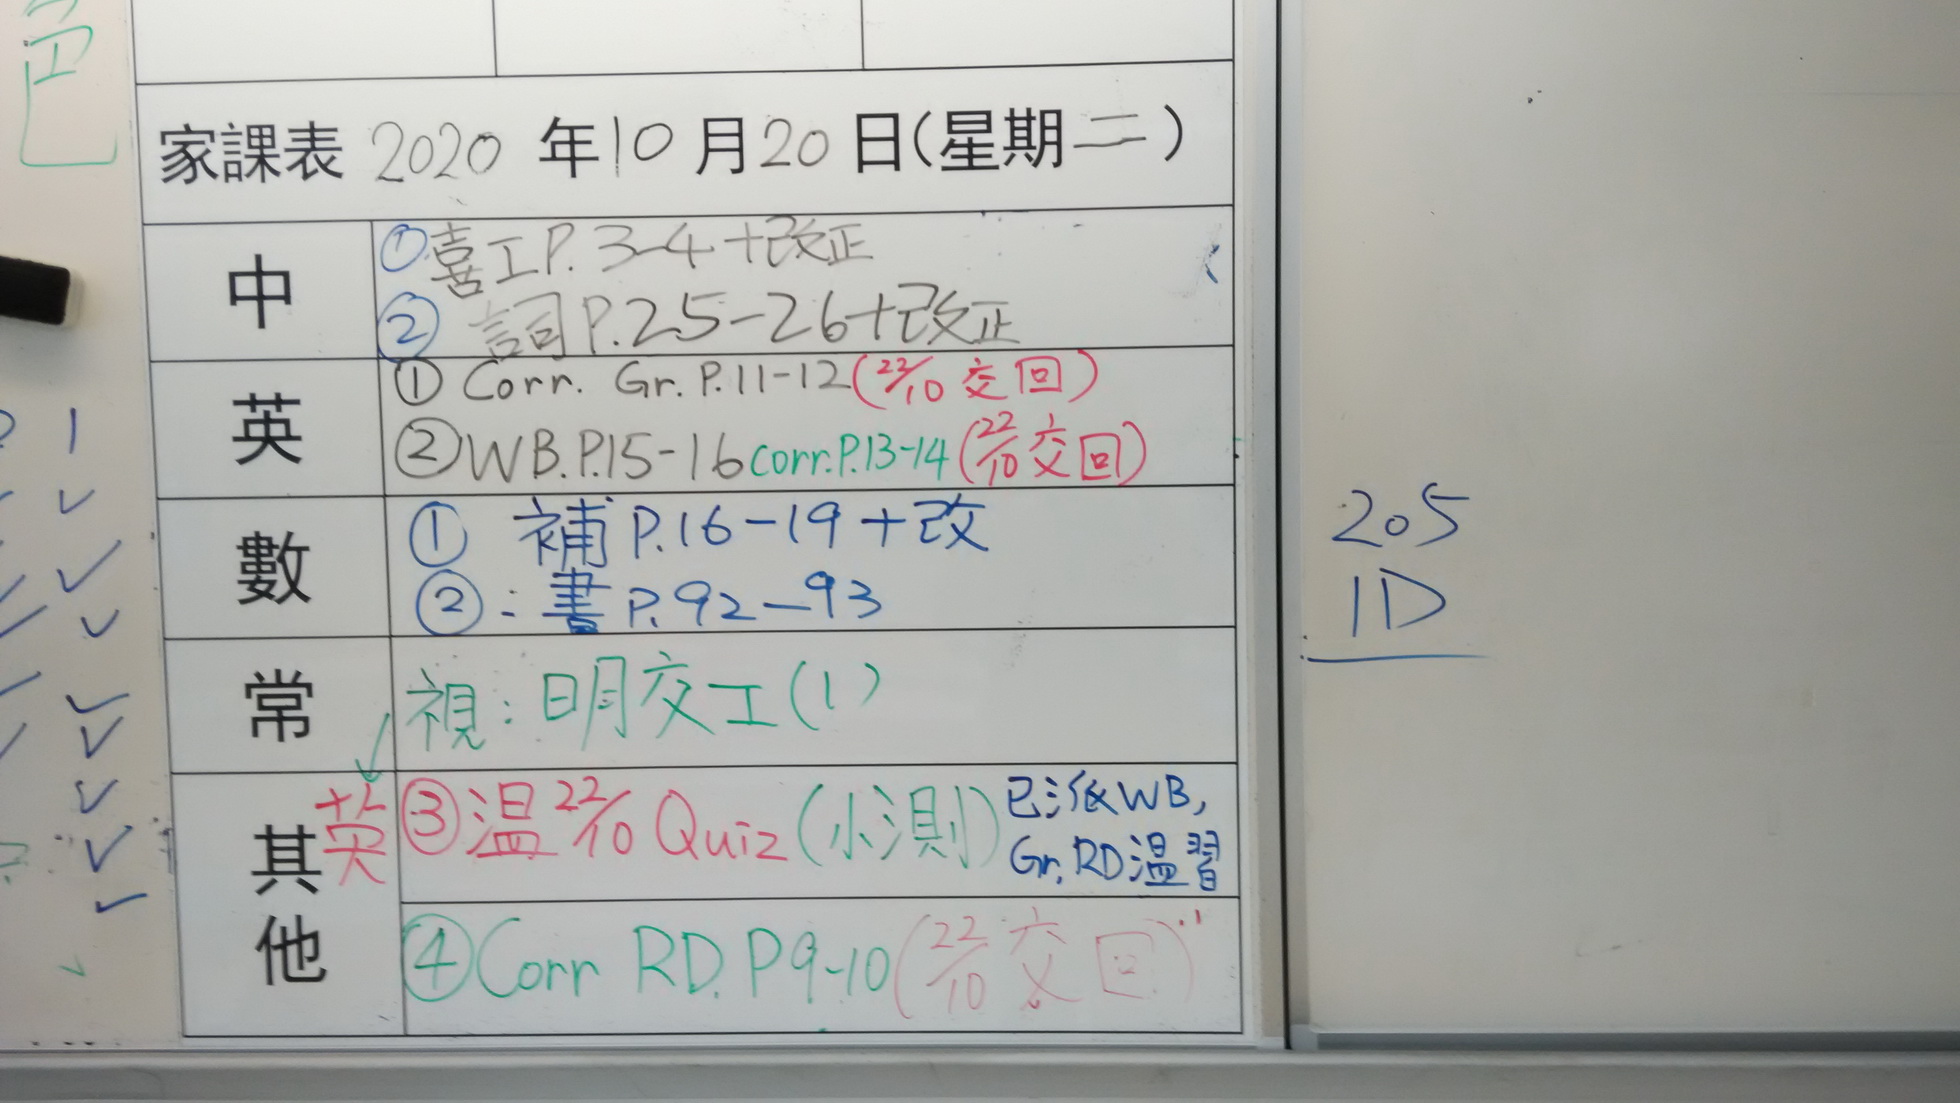 家課表 2020 年 10 月 20 日(星期二)
中
①喜工P.3-4+改正
② 詞P.25-26+改正
英
① Corr. Gr. P.11-12(22/10 交回)
②WB.P.15-16 corr.P.13-14(22/10交回)
數
① 補P.16-19+改
②:書P.92-93
常
視:明交工(1)
其他
英
③温22/10 Quiz(小測)已派WB,
Gr, RD温習
④Corr RD. P9-10(22/10交回)
205
1D